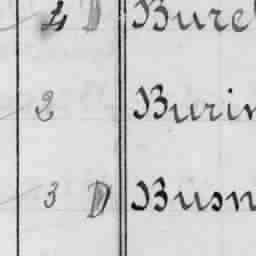 4 D Burel
2 Burin
3 D Busn